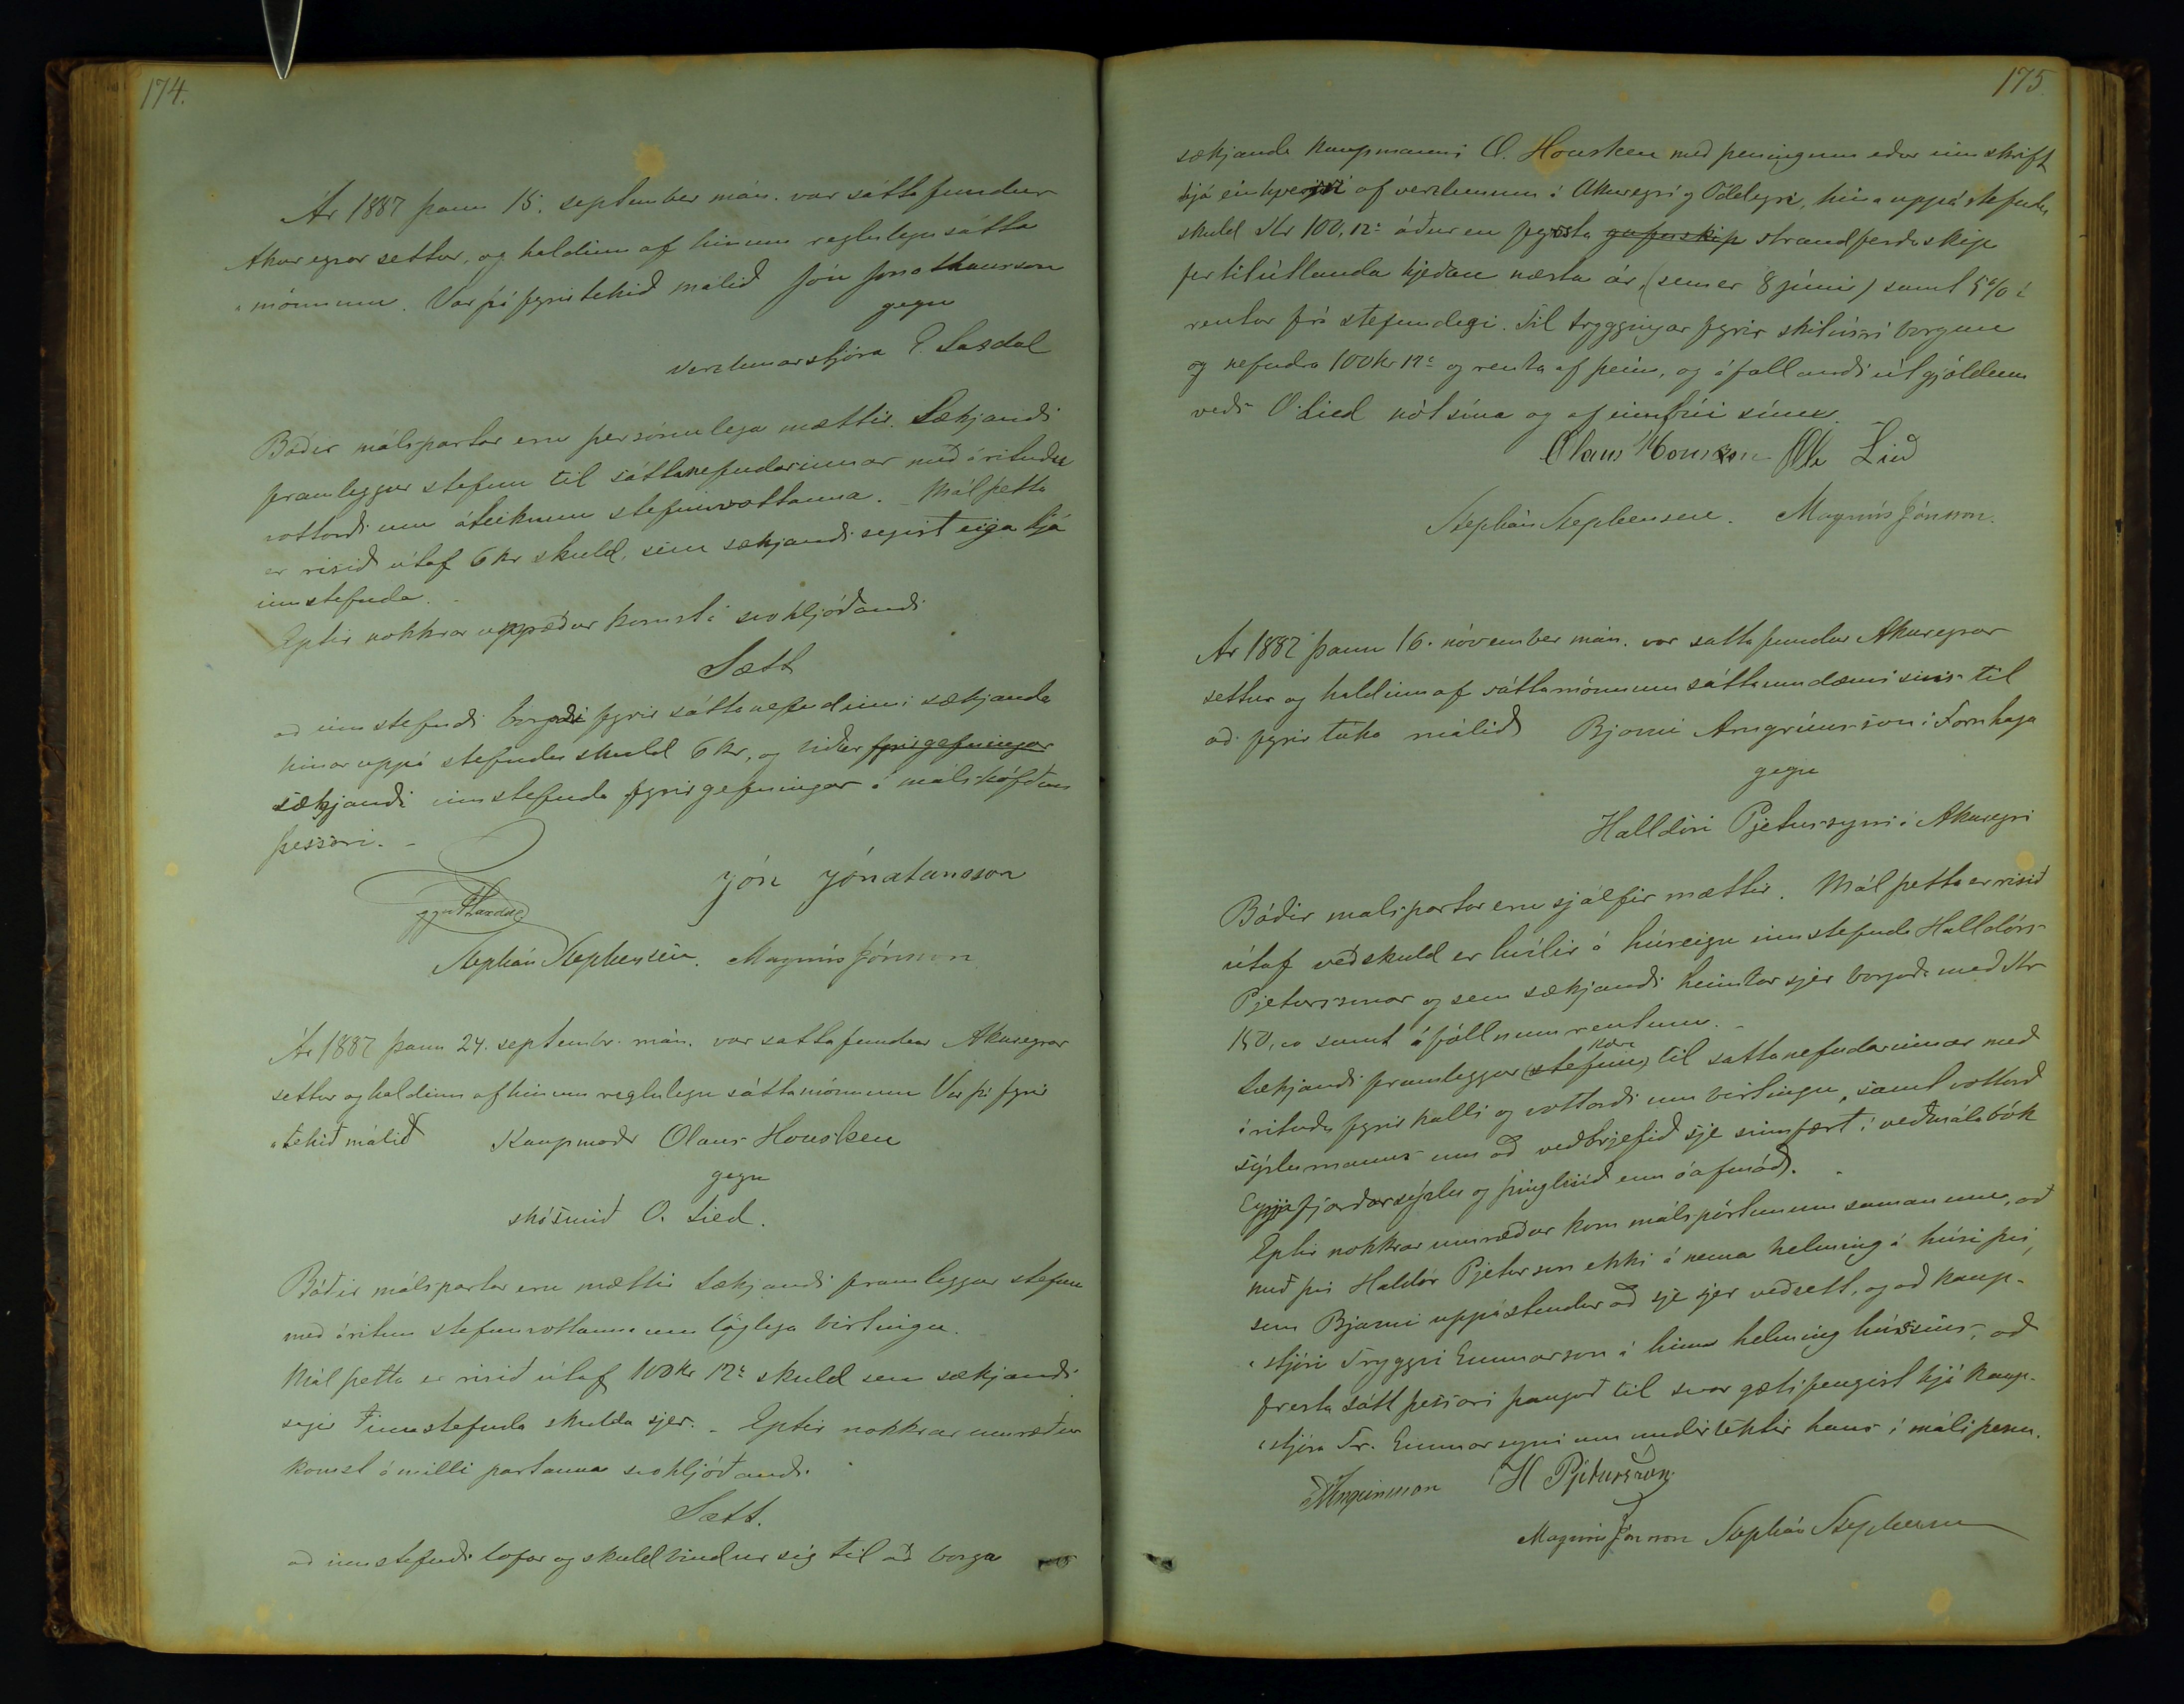 174.
Ár 1887 þann 15. september mán. var sáttafundur
Akureyrar settur, og haldinn af hinum reglulegu sátta
mönnum. Var þá fyrirtekið málið Jón Jónathansson
gegn
verzlunarstjóra E. Laxdal
Báðir málspartar eru persónulega mættir. Sækjandi
framleggur stefnu til sáttanefndarinnar með árituðu
vottorði um áteiknun stefnuvottanna. Mál þetta
er risið útaf 6 kr skuld, sem sækjandi segist eiga hjá
innstefnda.
Eptir nokkrar uppræður komst á svohljóðandi
Sætt
að innstefndi borgaði fyrir sáttanefndinni sækjanda
hinar uppá stefndu skuld 6 kr, og biður fyrirgefningar
sækjandi innstefnda fyrirgefningar á málshöfðun
þessari.
Jón Jónatansson
Eggert Laxdal
Stephán Stephensen. Magnús Jónsson
Ár 1887 þann 24. septembr. mán. var sattafundur Akureyrar
settur og haldinn af hinum reglulegu sáttamönnum Var þá fyrir
tekið málið Kaupmaðr Olaus Housken
gegn
skósmið O. Lied.
Báðir málspartar eru mættir Sækjandi framleggur stefnu
með áritun stefnuvottanna um löglega birtingu.
Mál þetta er risið útaf 100 kr 12 a skuld sem sækjandi
segir innstefnda skulda sjer. Eptir nokkrar umræður
komst á milli partanna svohljóðandi
Sætt.
að innstefndi lofar og skuldbindur sig til að borga
175.
sækjanda kaupmanni O. Housken með peningum eður innskrift
hjá einhverri af verzlunum á Akureyri og Oddeyri, hina uppá stefndu
skuld Kr 100,12 a áður en fyrsta gufuskip strandferðaskip
fer til útlanda hjeðan næsta ár, (sem er 8 júní) samt 5% í
rentur frá stefnudegi. Til tryggingar fyrir skilvísri borgun
og nefndra 100 kr 12 a og renta af þeim, og áfallandi útgjöldum
veðs O. Lied nót sína og af innbúi sínu.
Olaus Housken Ole Lied
Stephán Stephensen. Magnús Jónsson.
Ár 1887 þann 16. nóvember mán. var sattafundur Akureyrar
settur og haldinn af sáttamönnum sáttaumdæmisins til
að fyrir taka málið Bjarni Arngrímsson í Fornhaga
gegn
Halldóri Pjeturssyni á Akureyri
Báðir malspartar eru sjálfir mættir. Mál þetta er risið
útaf veðskuld er hvílir á húseign innstefnda Halldórs
Pjeturssonar og sem sækjandi heimtar sjer borgaða með Kr
150,00 samt áföllnum rentum.
Sækjandi framleggur (stefnu) kæru til sattanefndarinnar með
árituðu fyrirkalli og vottorði um birtingu, samt vottorð
sýslumanns um að veðbrjefið sje innfært í veðmálabók
Eyjafjarðarsýslu og þinglesið enn óafmáð.
Eptir nokkrar umræður kom málspörtunum saman um, að
með því Haldór Pjetursson ekki á nema helming í húsi því,
sem Bjarni uppástendur að sje sjer veðsett, og að kaup-
stjóri Tryggvi Gunnarsson á hinn helming hússins, að
fresta sátt þessari þangað til svar gæti fengist hjá kaup-
stjóra Tr. Gunnarssyni um undirtektir hans í máli þessu.
BArngrimsson H Pjetursson
Magnús Jónsson Stephán Stephensen